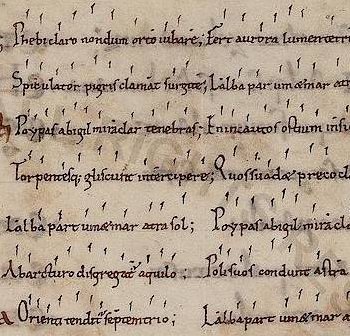 Phebi claro nondum orto iubare; Fert aurora lumen terri
Spiculator pigris clamat surgite; Lalba par um& mar atr
Poy pas abigil miraclar tenebras; En incautos ostium insi
Torpentesq; gliscunt intercipere; Quos suad& preco cla
Lalba part um& mar atra sol; Poy pas abigil miracla
Ab arcturo disgregat' aquilo; Poli suos condunt astra
Orienti tendit' septemtrio; Lalba part um& mar a